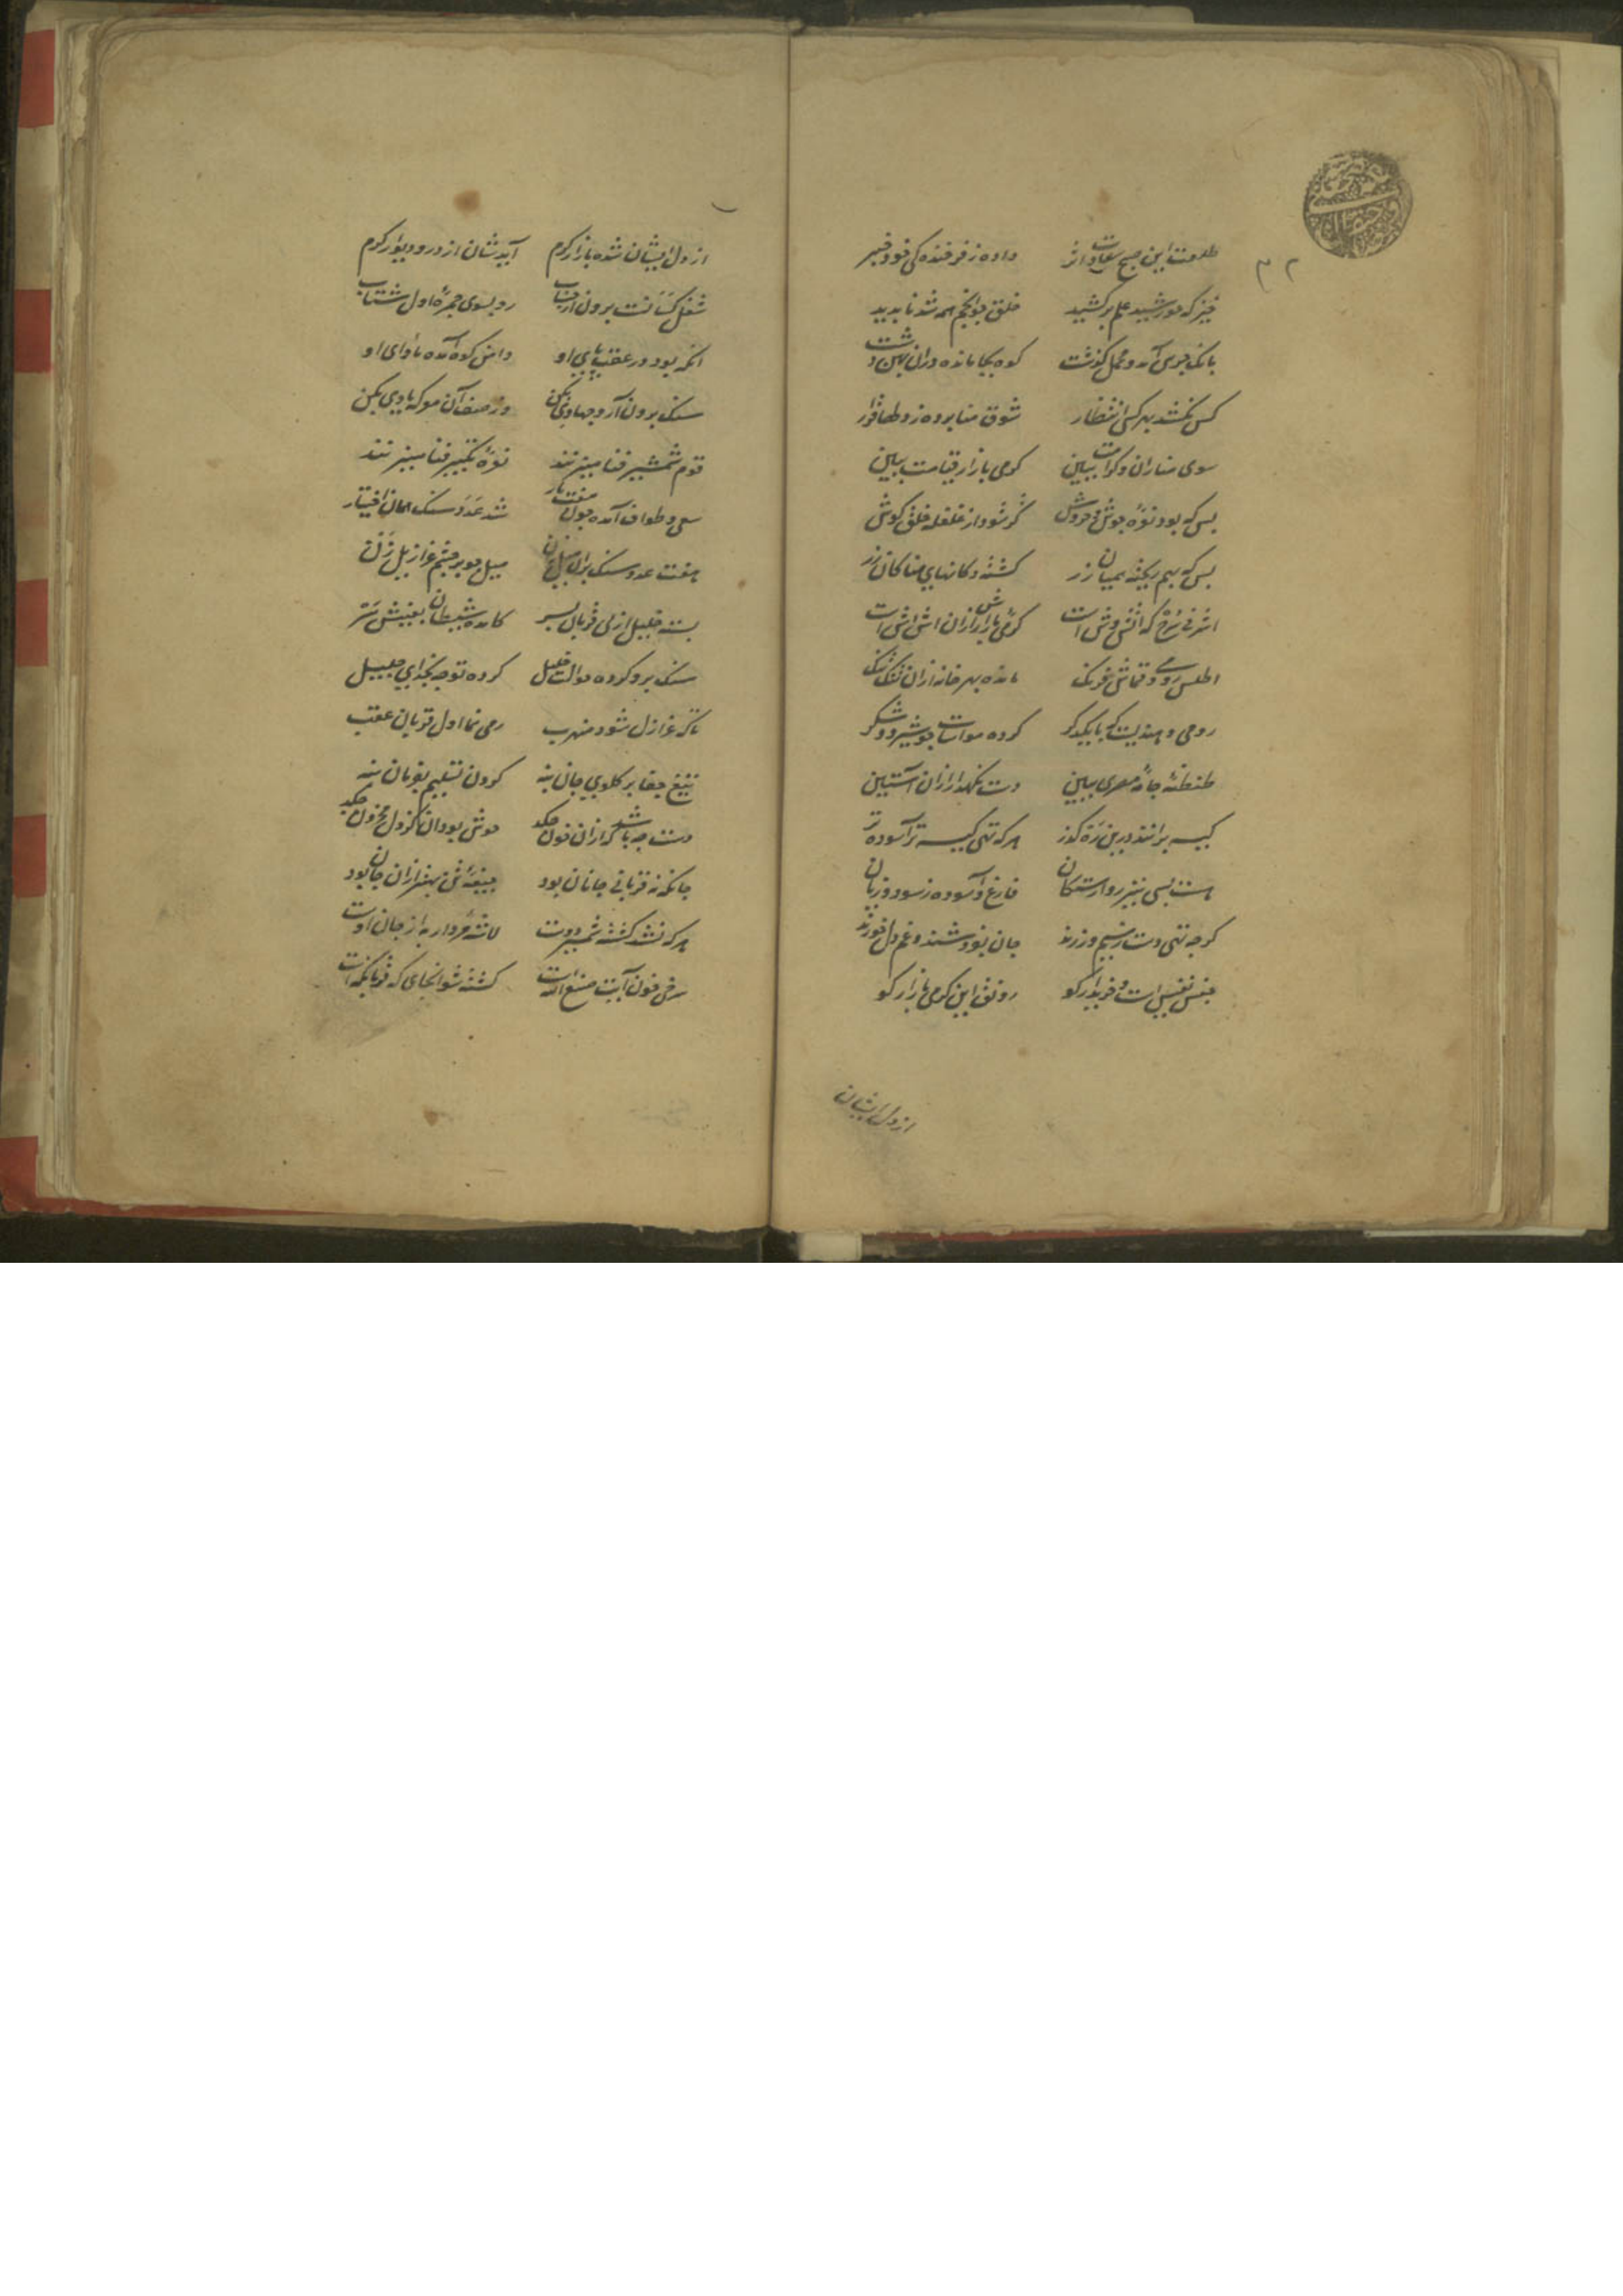 طلعت این صبح سعادت اثر داده ز فرخندگی خود خبر
خیز که خورشید علم برکشید خلق چو انجم همه شد ناپدید
بانک جرس آمد و محمل گذشت کوه بجا مانده در آن پهن دشت
کس نکشد بهر کسی انتظار شوق منا برده ز دلها قرار
سوی منا ران و کرامت ببین گرمی بازار قیامت ببین
بس که بود نعره و جوش و خروش کر شود از غلغله خلق گوش
بس که بهم ریخته همیان زر گشته دکانهای منا کان زر
اشرفی سرخ که آتش وش است گرمی بازارش از آن آتش است
اطلس رومی و قماش فرنگ مانده بهر خانه از آن تنگ تنگ
رومی و هندیست که با یکدگر کرده مواسات چو شیر و شکر
طنطنه جامه مصری ببین دست نگهدار از آن آستین
کیسه برانند درین ره گذر هر که تهی کیسه تر آسوده تر
هست بسی نیز ز وارستگان فارغ و آسوده ز سود و زیان
گرچه تهی دست ز سیم و زرند جان بفروشند و غم دل خورند
جنس نفیس است خریدار کو رونق این گرمی بازار کو
از دل ایشان
از دل ایشان شده بازار گرم آید شان از در و دیوار گرم
شغل کسانت برون از حساب رو بسوی جمره اول شتاب
آنکه بود در عقب پای او دامن کوه آمده ماوای او
سنک برون آر و جهادی بکن وز صف آن معرکه یادی بکن
قوم شمشیر فنا میزنند نعره تکبیر فنا میزنند
سعی و طواف آمده چون هفت بار شد عدد سنک همان اختیار
هفت عدد سنک بر آن میل زن میل چو بر چشم عزازیل زن
بسته خلیل از پی قربان پسر کامده شیطان بعینش بسر
سنک برو کرده حوالت خلیل کرده توجه بخدای جلیل
تا که عزازل شود منهرب رمی نما اول و قربان عقب
تیغ جفا بر گلوی جان بنه گردن تسلیم بفرمان بنه
دست چه باشد کز آن خون چکد خوش بود آن کز دل محزون چکد
جانکه نه قربانی جانان بود جیفه تن بهتر از آن جان بود
هر که نشد کشته شمشیر دوست لاشه مردار به از جان اوست
سرخی خون آیت صنع الله است کشته شو آنجای که قربانگه است